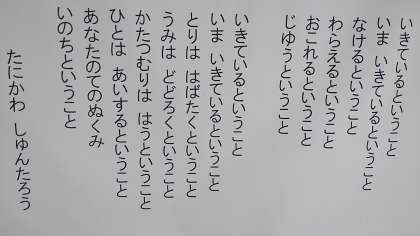 いきているということ
いま いきているということ
なけるということ
わらえるということ
おこれるということ
じゆうということ
いきているということ
いま いきているということ
とりは はばたくということ
うみは どどろくということ
かたつむりは はうということ
ひとは あいするということ
あなたのてのぬくみ
いのちということ
たにかわ しゅんたろう